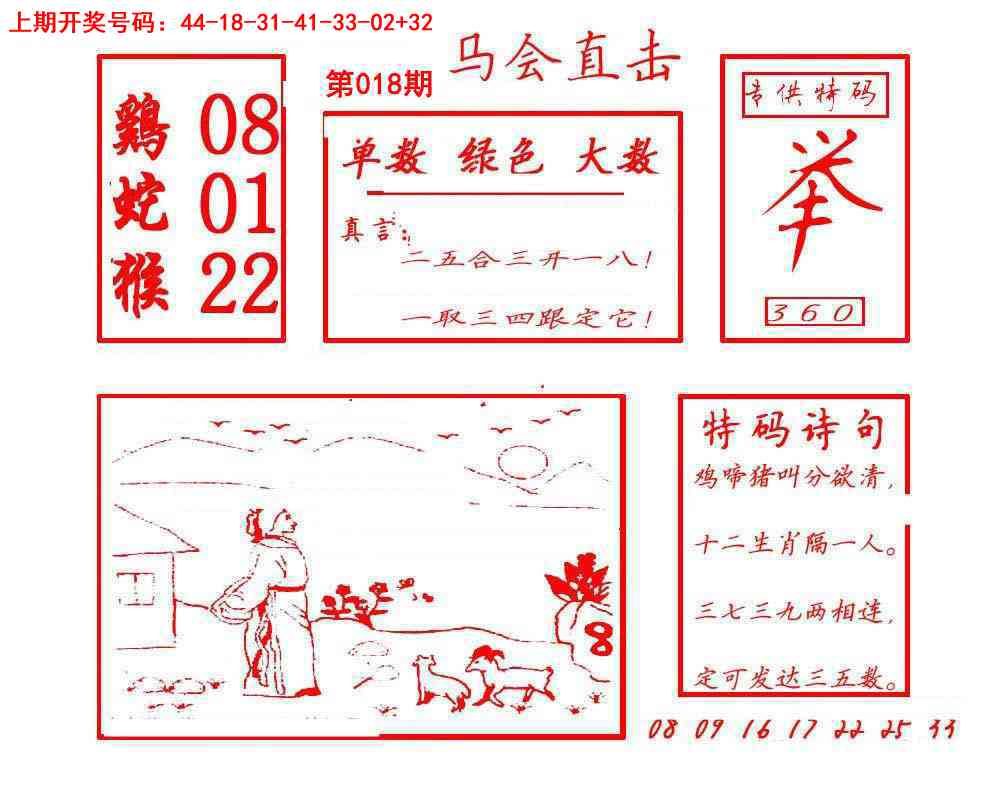 上期开奖号码：44-18-31-41-33-02+32
马会直击
第018期
鷄 08
蛇 01
猴 22
单数 绿色 大数
真言：
二五合三开一八！
一取三四跟定它！
专供特码
举
360
8
特码诗句
鸡啼猪叫分欲清，
十二生肖隔一人。
三七三九两相连，
定可发达三五数。
08 09 16 17 22 25 33